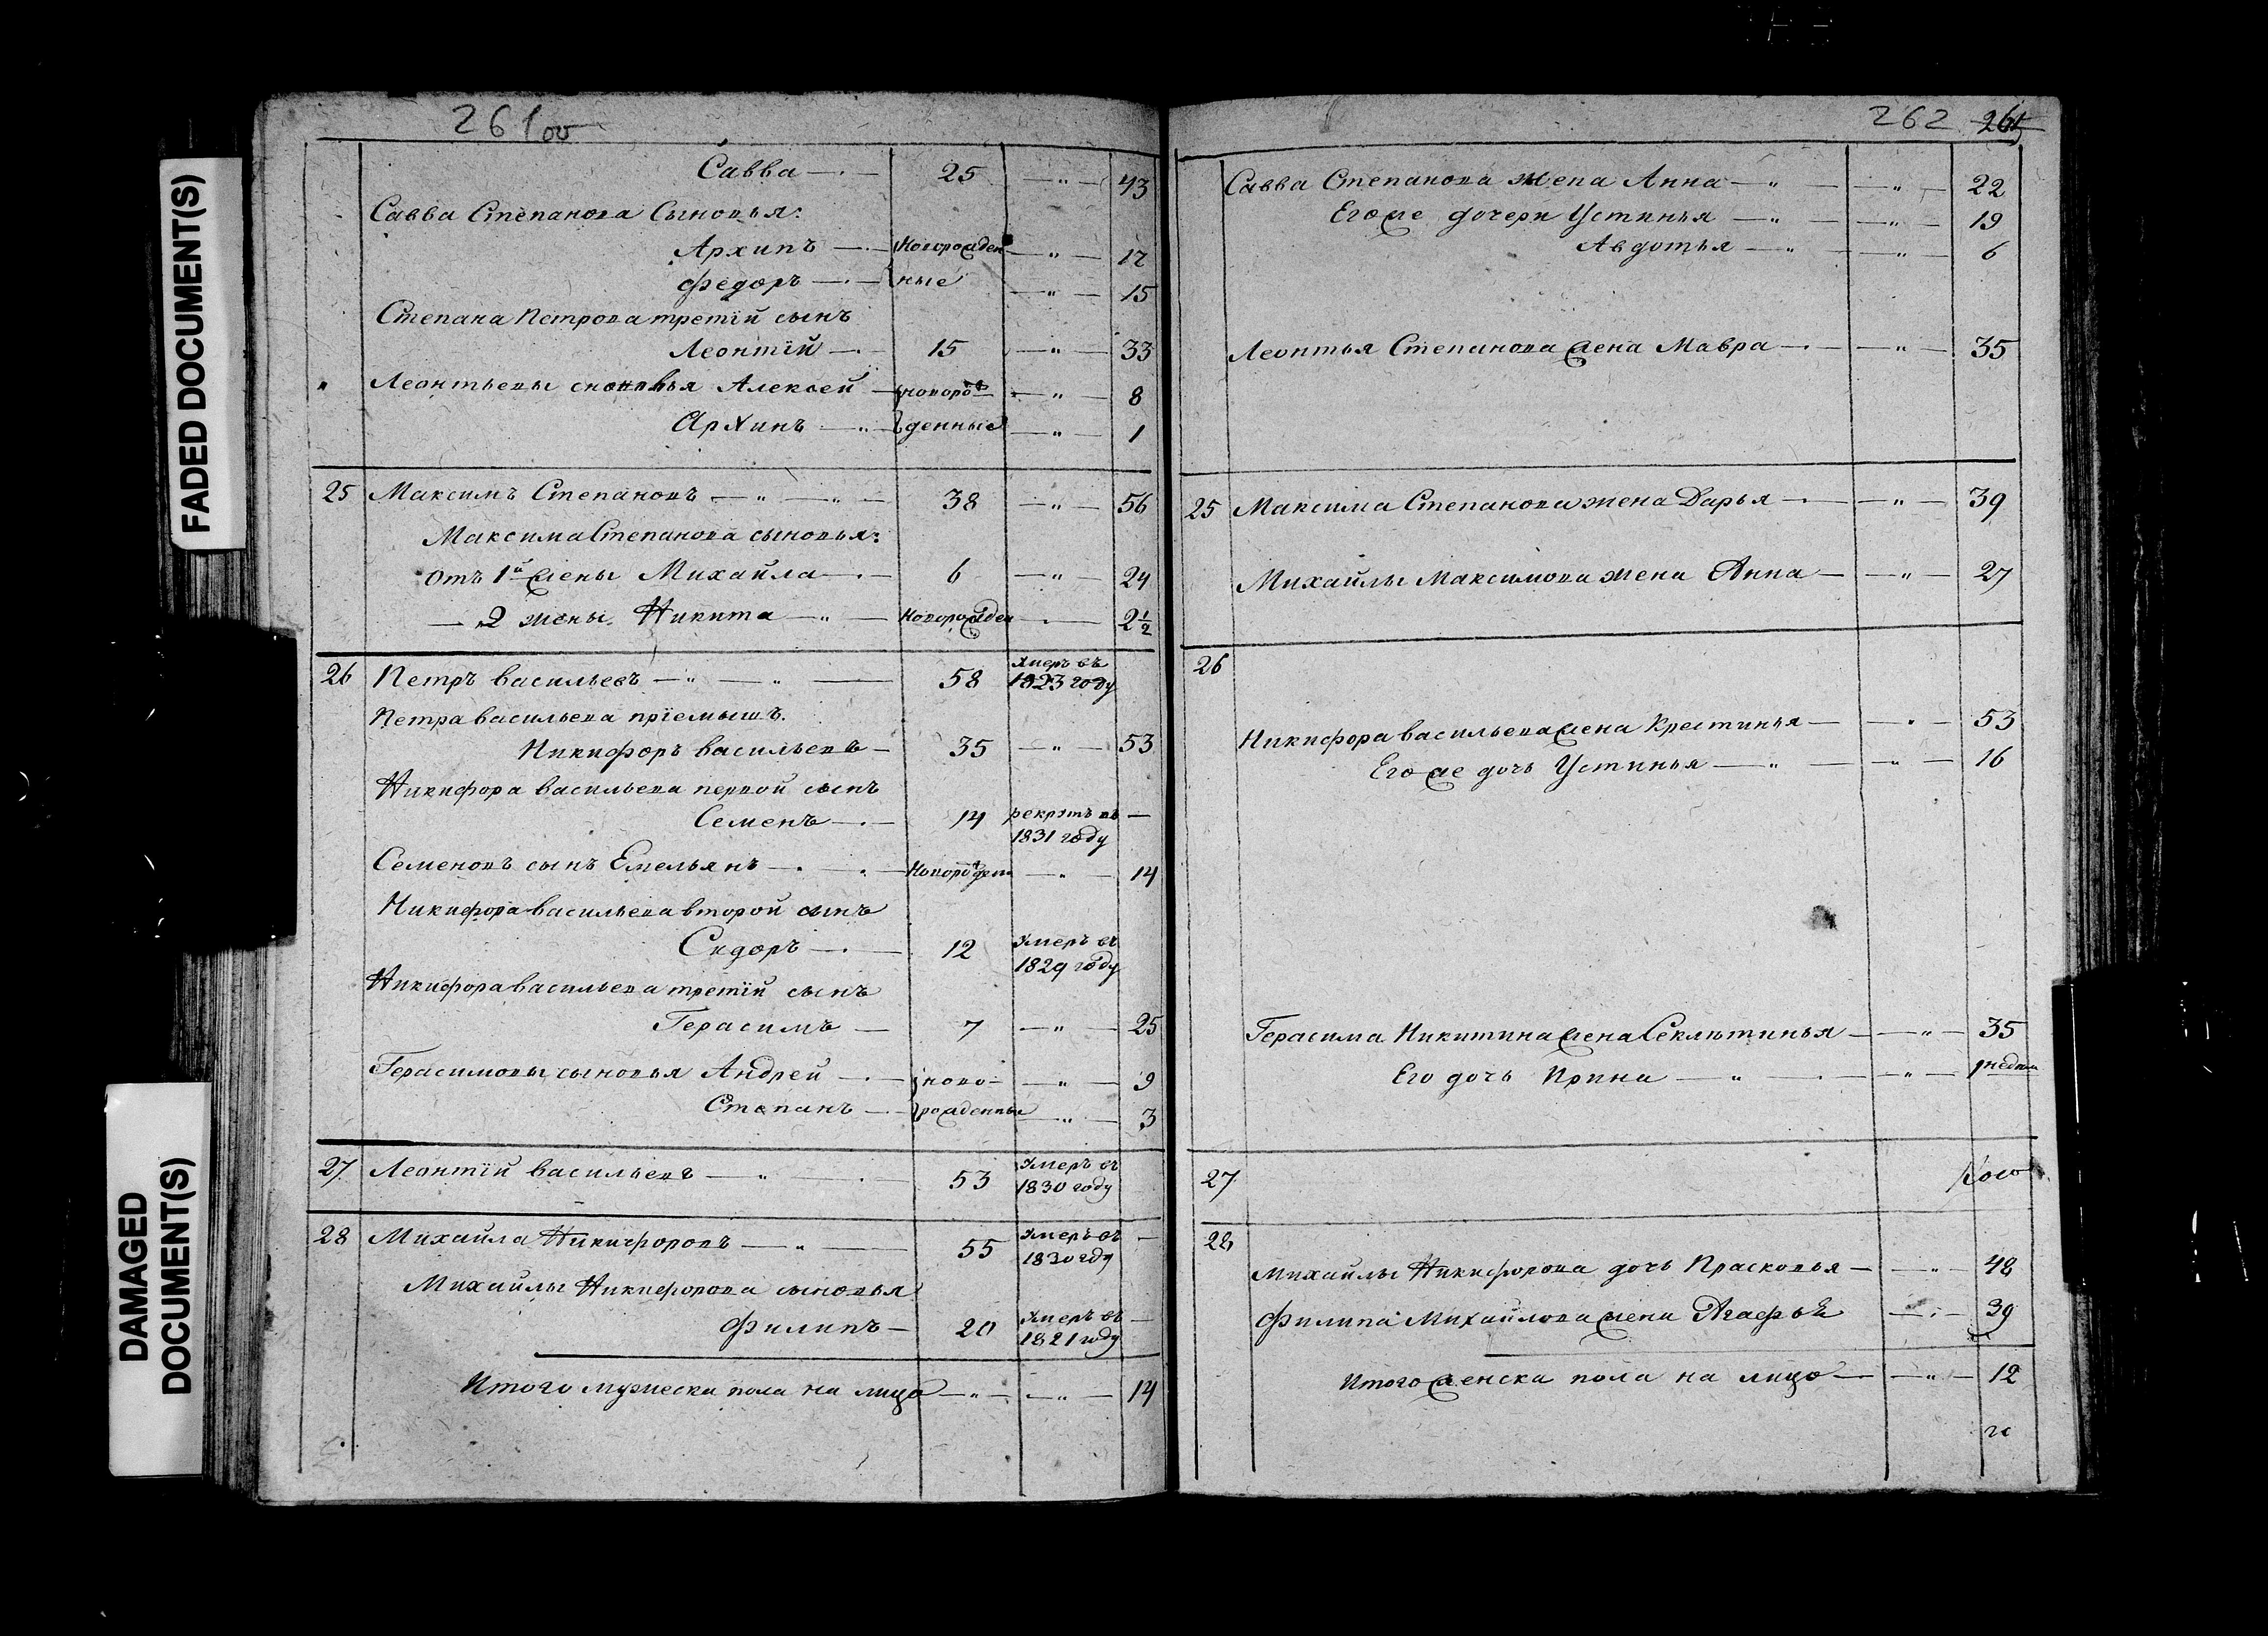 FADED DOCUMENT(S)
DAMAGED DOCUMENT(S)
261 об
Савва — 25 — " — 43
Савва Степанова Сыновья:
Архипъ — новорожден — " — 17
Федоръ — ные — " — 15
Степана Петрова третій сынъ
Леонтій — 15 — " — 33
Леонтьевы сыновья Алексей — новорож — " — 8
Архипъ — " — денные — " — 1
25 Максимъ Степановъ — " — " — 38 — " — 56
Максима Степанова сыновья:
отъ 1й жены Михайла — 6 — " — 24
— " 2 жены Никита — " — новорожден — 2 1/2
26 Петръ Васильевъ — " — " — 58 умеръ въ 1823 году
Петра Васильева пріемышъ.
Никифоръ Васильевъ — 35 — " — 53
Никифора Васильева первой сынъ
Семенъ — 14 рекрутъ въ 1831 году —
Семеновъ сынъ Емельянъ — новорожден — " — 14
Никифора Васильева второй сынъ
Сидоръ — 12 умеръ въ 1829 году
Никифора Васильева третій сынъ
Герасимъ — 7 — " — 25
Герасимовы сыновья Андрей — ново — " — 9
Степанъ — рожденные — " — 3
27 Леонтій Васильевъ — " — 53 умеръ въ 1830 году
28 Михайла Никифоровъ — " — 55 умеръ въ 1830 году —
Михайлы Никифорова сыновья
Филипъ — 20 умеръ въ 1821 году —
Итого мужеска пола на лицо — " — — " — 14
262 265
Савва Степанова жена Анна — " — — " — 22
Егоже дочери Устинья — " — — " — 19
Авдотья — " — — " — 6
Леонтья Степанова жена Мавра — — " — 35
25 Максима Степанова жена Дарья — — " — 39
Михайлы Максимова жена Анна — — " — 27
26
Никифора Васильева жена Крестинья — — " — 53
Егоже дочь Устинья — " — — " — 16
Герасима Никитина жена Секлътинья — — " — 35
Его дочь Ирина — " — — " — 1 недели
27
28
Михайлы Никифорова дочь Прасковья — — " — 48
Филипа Михайлова жена Агафья — " — 39
Итого женска пола на лицо — — " — 12